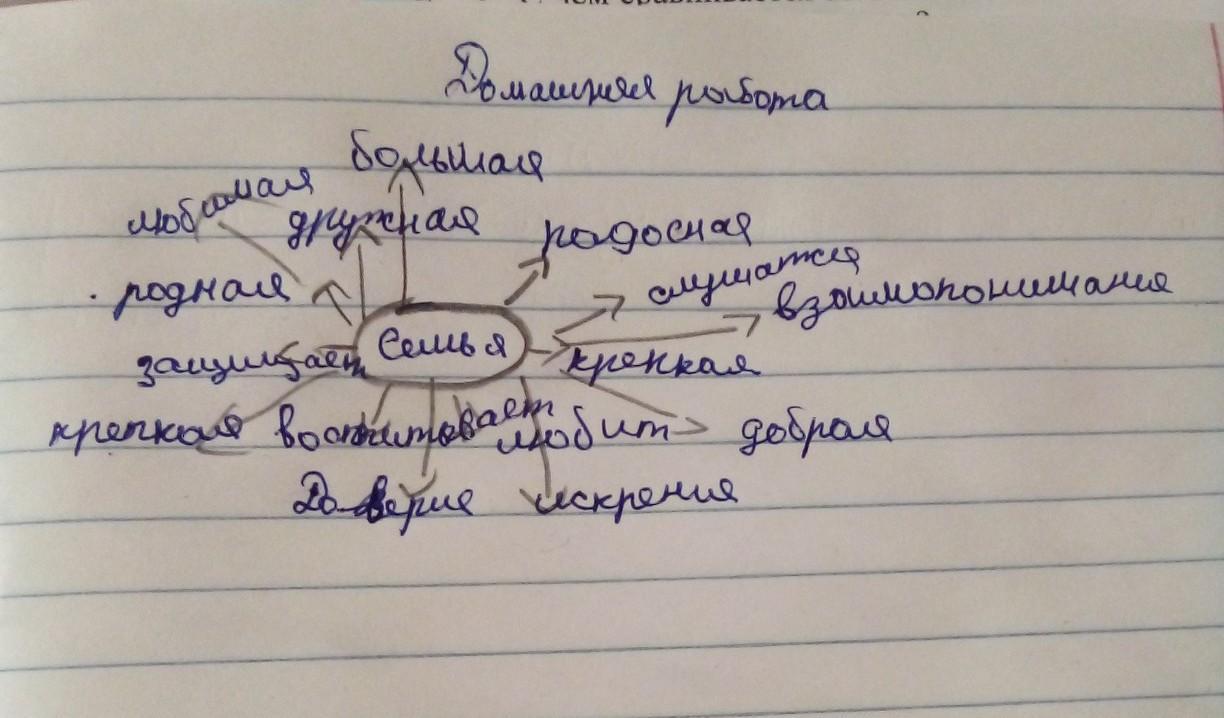 чем сравнивается
Домашняя работа
большая
любимая
дружная
радосная
слушатся
родная
взаимопонимания
Семья
защищает
крепкая
крепкая
воспитывает
любит
добрая
Доверие
искрения